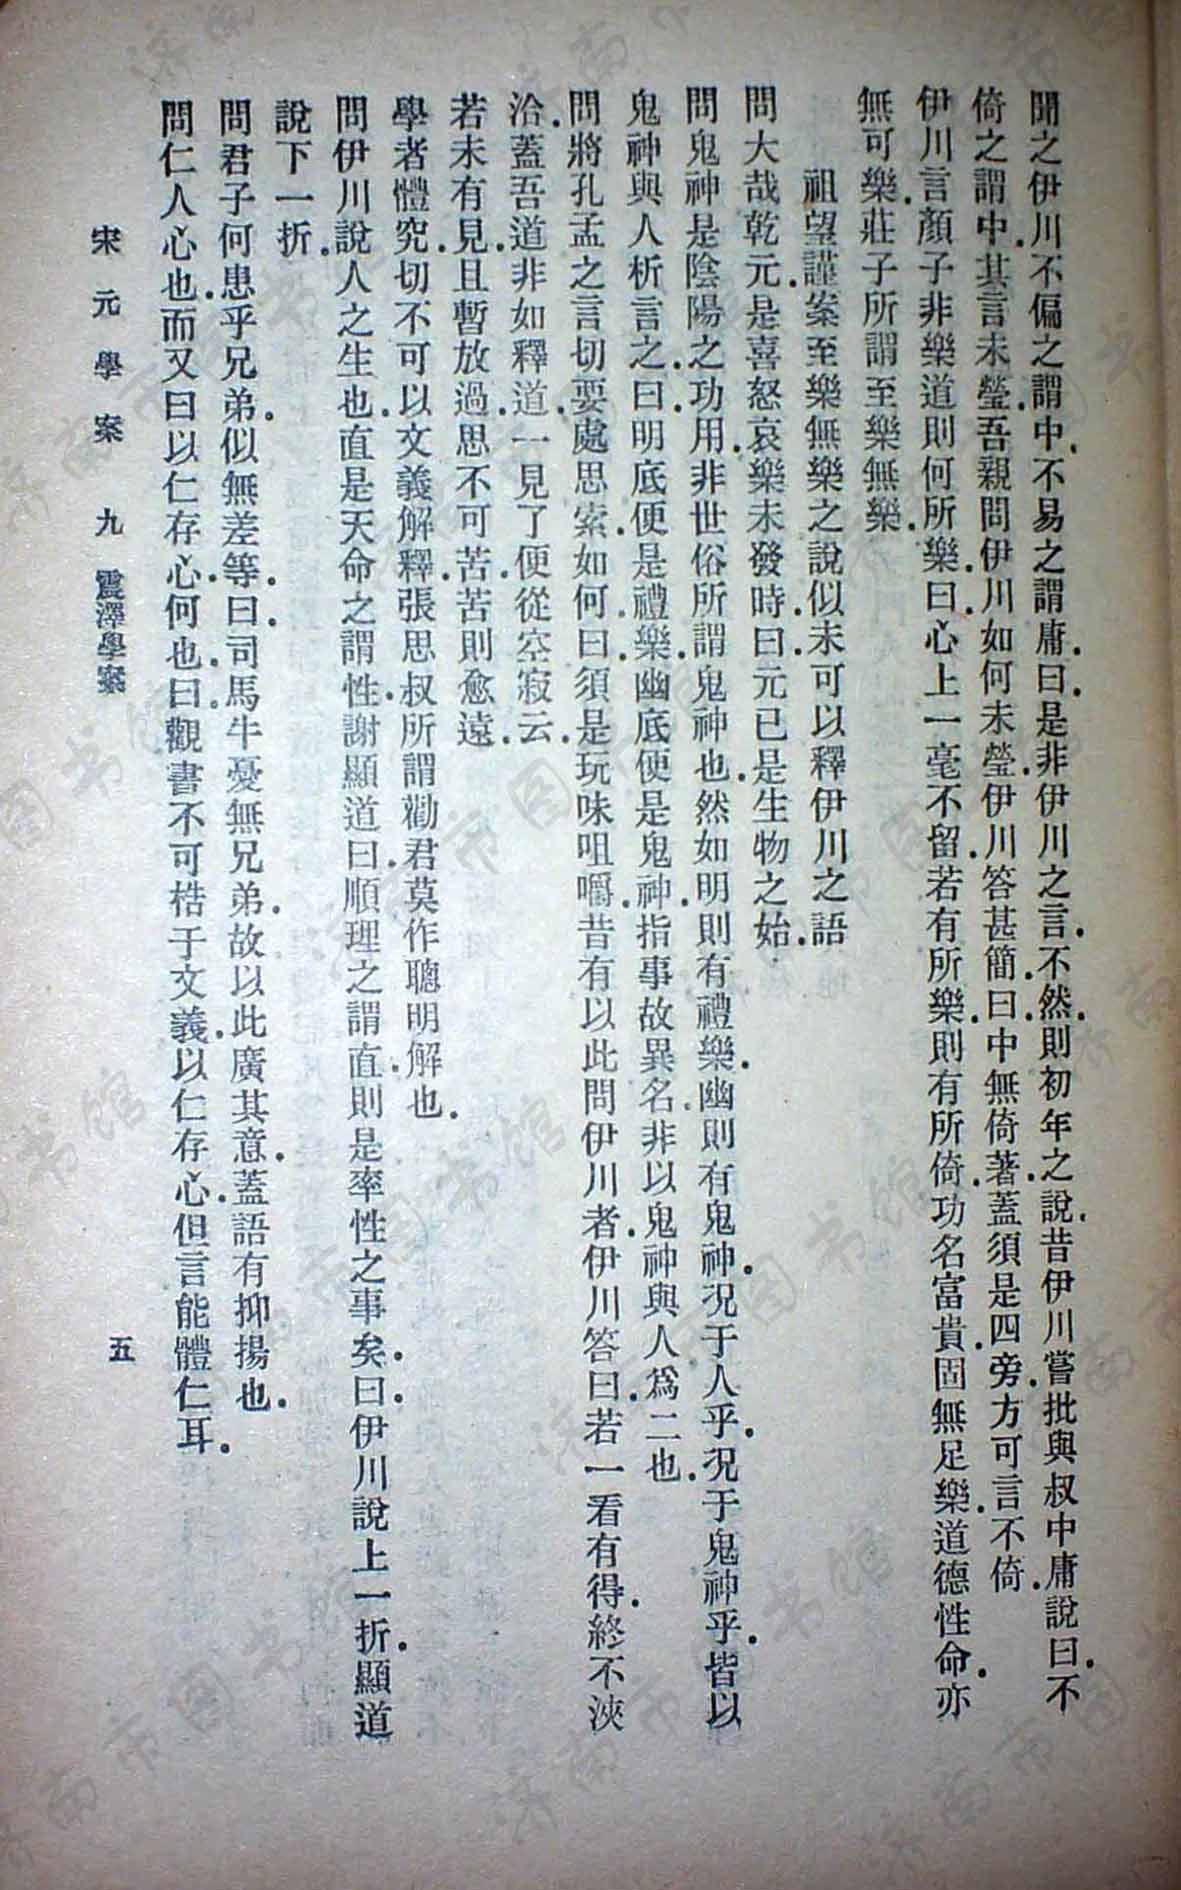 聞之伊川不偏之謂中不易之謂庸曰是非伊川之言不然則初年之說昔伊川嘗批與叔中庸說曰不
倚之謂中其言未瑩吾親問伊川如何未瑩伊川答甚簡曰中無倚著蓋須是四旁方可言不倚
伊川言顏子非樂道則何所樂曰心上一毫不留若有所樂則有所倚功名富貴固無足樂道德性命亦
無可樂莊子所謂至樂無樂
祖望謹案至樂無樂之說似未可以釋伊川之語
問大哉乾元是喜怒哀樂未發時曰元已是生物之始
問鬼神是陰陽之功用非世俗所謂鬼神也然如明則有禮樂幽則有鬼神況于人乎況于鬼神乎皆以
鬼神與人析言之曰明底便是禮樂幽底便是鬼神指事故異名非以鬼神與人爲二也
問將孔孟之言切要處思索如何曰須是玩味咀嚼昔有以此問伊川者伊川答曰若一看有得終不浹
洽蓋吾道非如釋道一見了便從空寂云
若未有見且暫放過思不可苦苦則愈遠
學者體究切不可以文義解釋張思叔所謂勸君莫作聰明解也
問伊川說人之生也直是天命之謂性謝顯道曰順理之謂直則是率性之事矣曰伊川說上一折顯道
說下一折
問君子何患乎兄弟似無差等曰司馬牛憂無兄弟故以此廣其意蓋語有抑揚也
問仁人心也而又曰以仁存心何也曰觀書不可梏于文義以仁存心但言能體仁耳
宋元學案 九 震澤學案 五